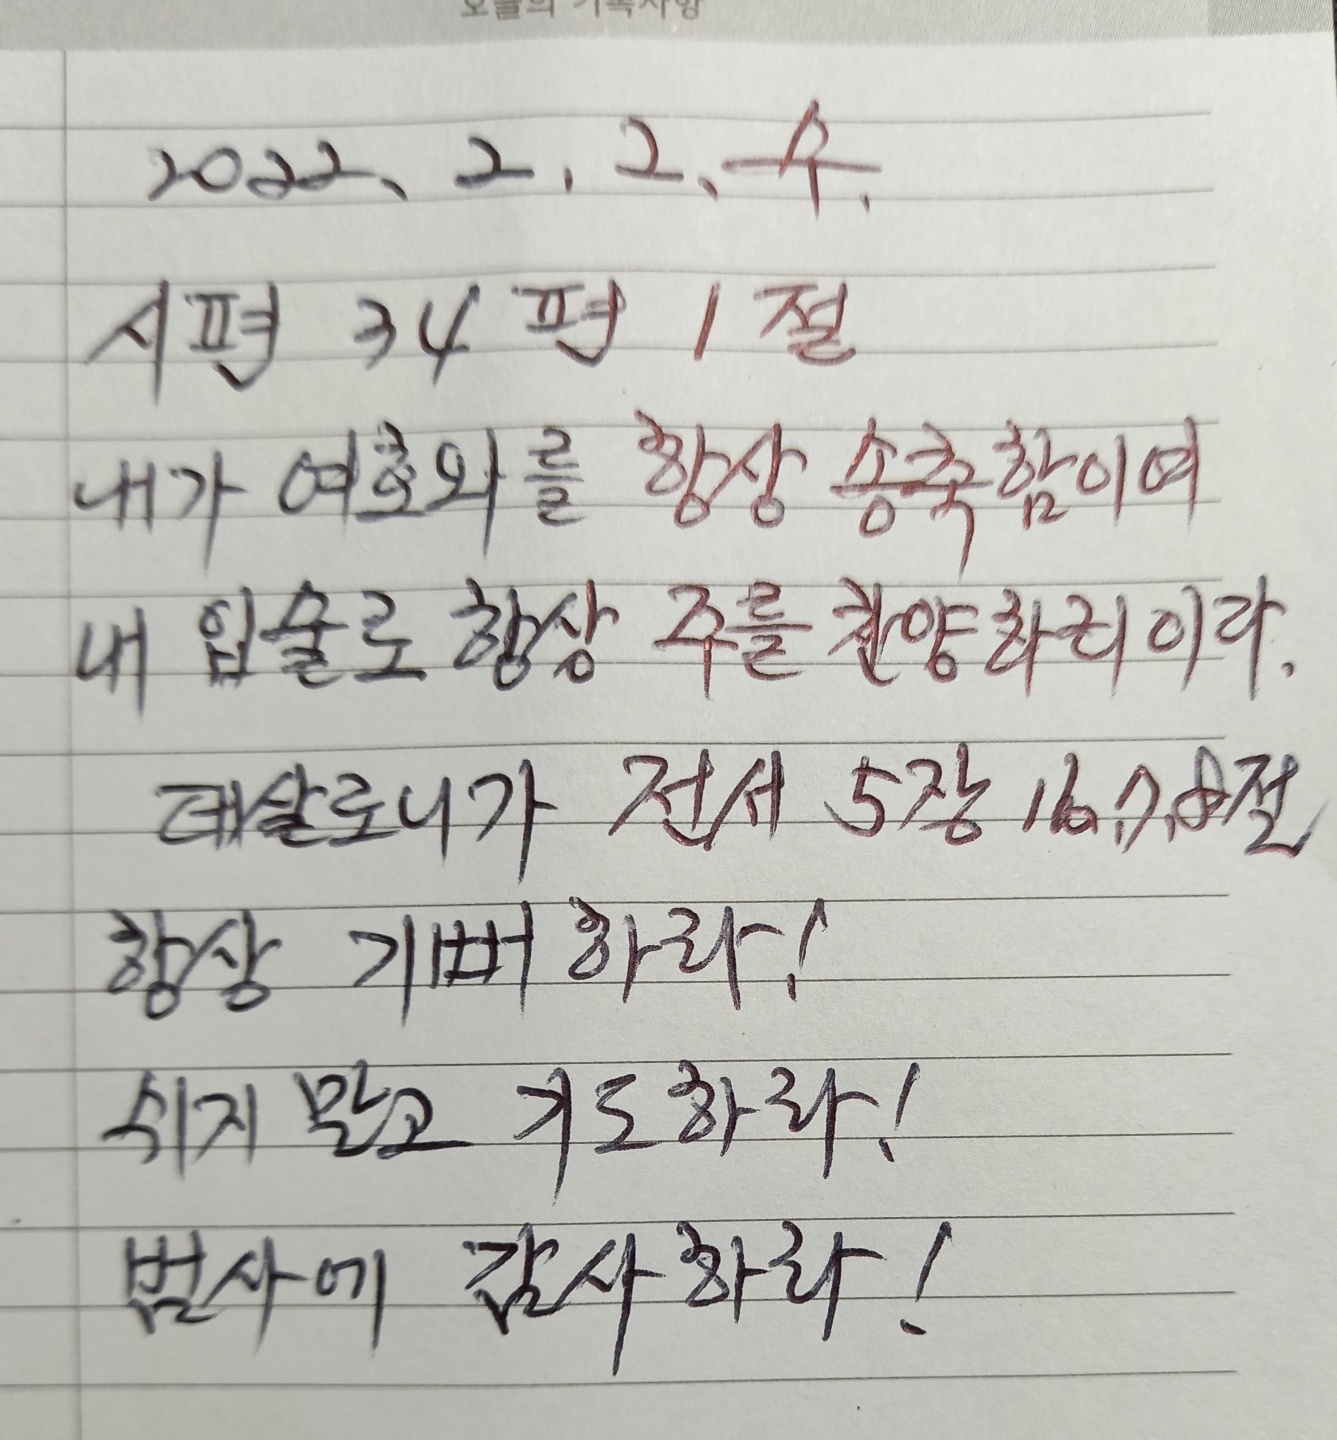 오늘의 기록사항
2022. 2. 2. 수.
시편 34편 1절
내가 여호와를 항상 송축함이여
내 입술로 항상 주를 찬양하리이다.
데살로니가 전서 5장 16.7.8절
항상 기뻐하라!
쉬지 말고 기도하라!
범사에 감사하라!